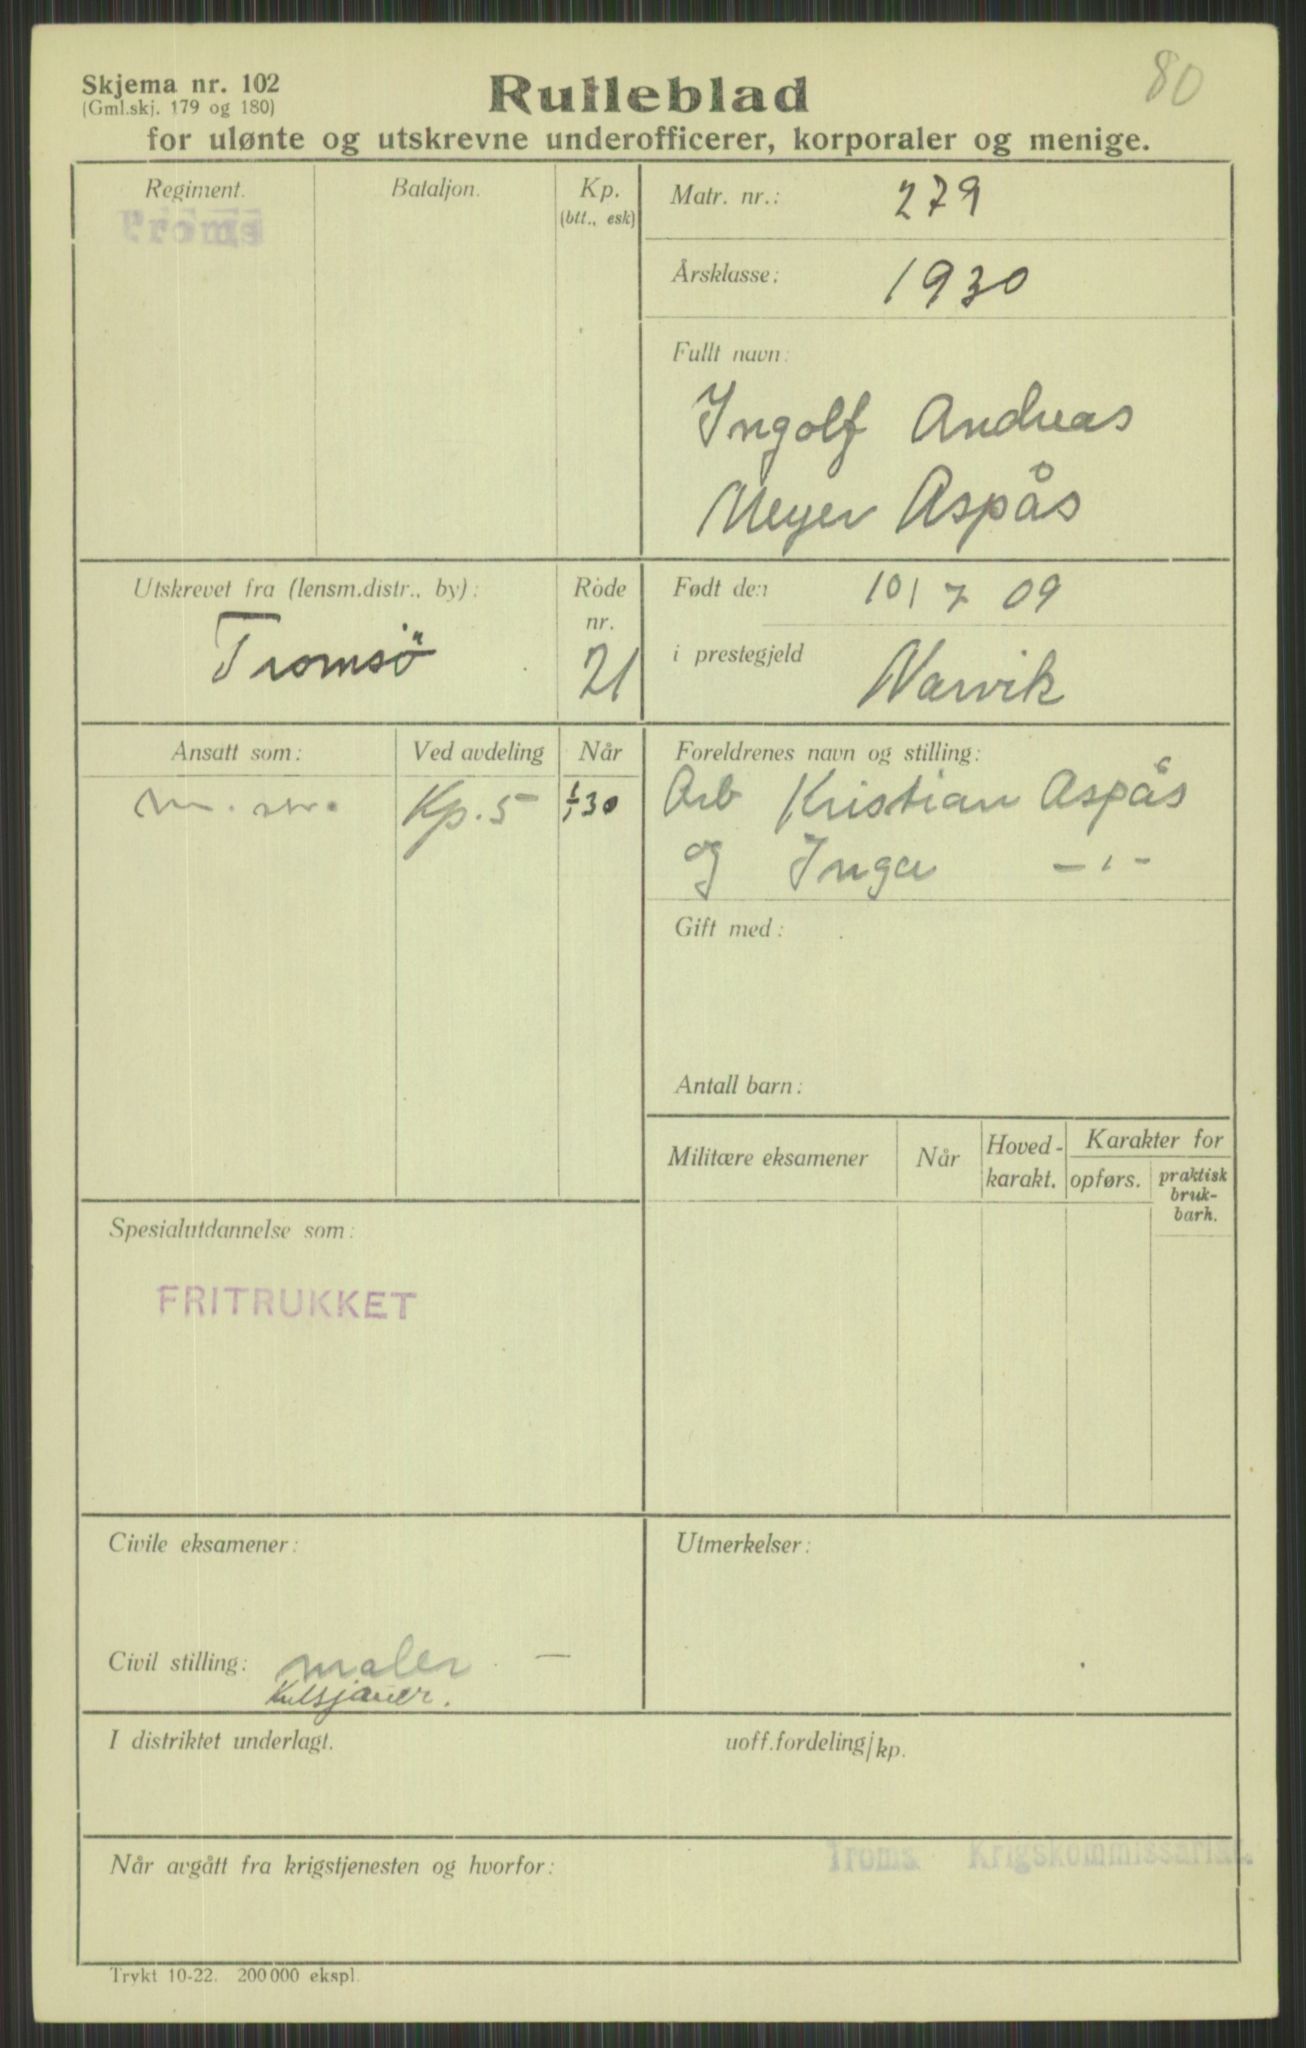 80
Skjema nr. 102
(Gml.skj. 179 og 180)
Rulleblad
for ulønte og utskrevne underofficerer, korporaler og menige.
Regiment. Bataljon. Kp.
(btt., esk)
Troms
Matr. nr.: 279
Årsklasse: 1930
Fullt navn:
Ingolf Andreas
Meyer Aspås
Utskrevet fra (lensm.distr., by):
Tromsö
Rode
nr.
21
Født den 10/7 09
i prestegjeld Narvik
Ansatt som: Ved avdeling Når
Kp. 5 1/1 30
Foreldrenes navn og stilling:
Arb Kristian Aspås
og Inga —"—
Gift med:
Antall barn:
Militære eksamener Når Hoved-
karakt. Karakter for
opførs. praktisk
bruk-
barh.
Spesialutdannelse som:
FRITRUKKET
Civile eksamener:
Civil stilling: maler —
Utmerkelser:
I distriktet underlagt. uoff.fordeling/kp.
Når avgått fra krigstjenesten og hvorfor:
Troms Krigskommissariat.
Trykt 10-22. 200 000 ekspl.